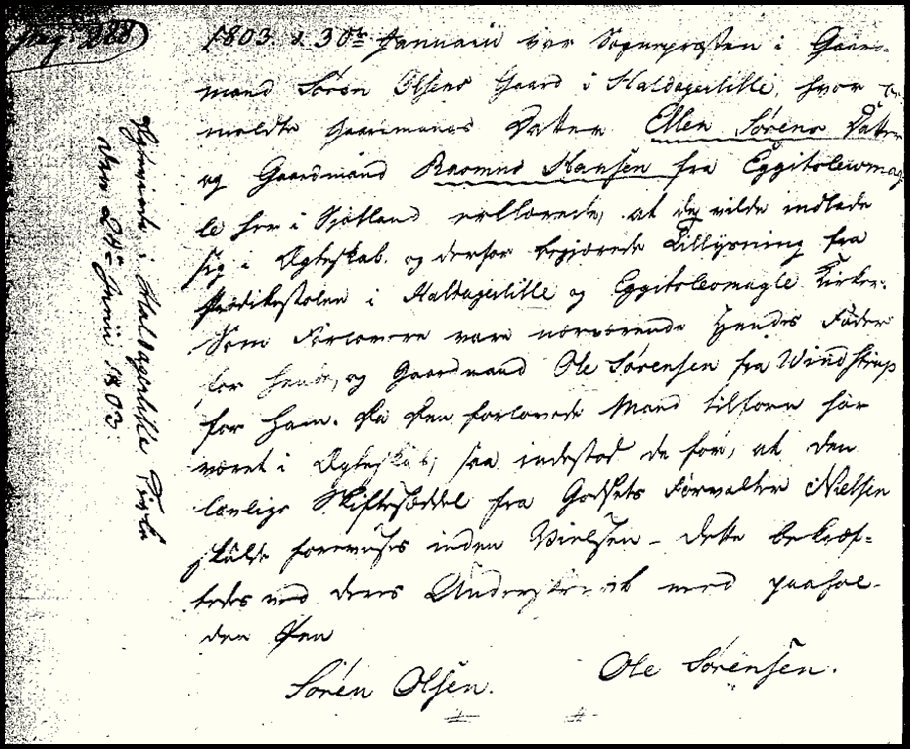 Pag. 288
1803. d. 30te Januarii var Sognepræsten i Gaard-
mand Søren Olsens Gaard i Haldagerlille, hvor be-
meldte Gaardmands Datter Ellen Sørens Datter
og Gaardmand Rasmus Hansen fra Eggitslevmag-
le her i Siælland erklærede, at de vilde indlade
sig i Ægteskab og derfor begiærede Tillysning fra
Prædikestolen i Haldagerlille og Eggitslevmagle Kirker.
Som Forlovere vare nærværende hendes Fader
for hende, og Gaardmand Ole Sørensen fra Windstrup
for ham. Da den forlovede Mand tilforn har
været i Ægteskab, saa indestod de for, at den
lovlige Skifteseddel fra Godsets Forvalter Nielsen
skulde forevises inden Vielsen – dette bekræf-
tedes med deres Underskrivt med paahol-
den Pen
Søren Olsen. Ole Sørensen.
Copulerede i Haldagerlille Kirke
den 24de Junii 1803.